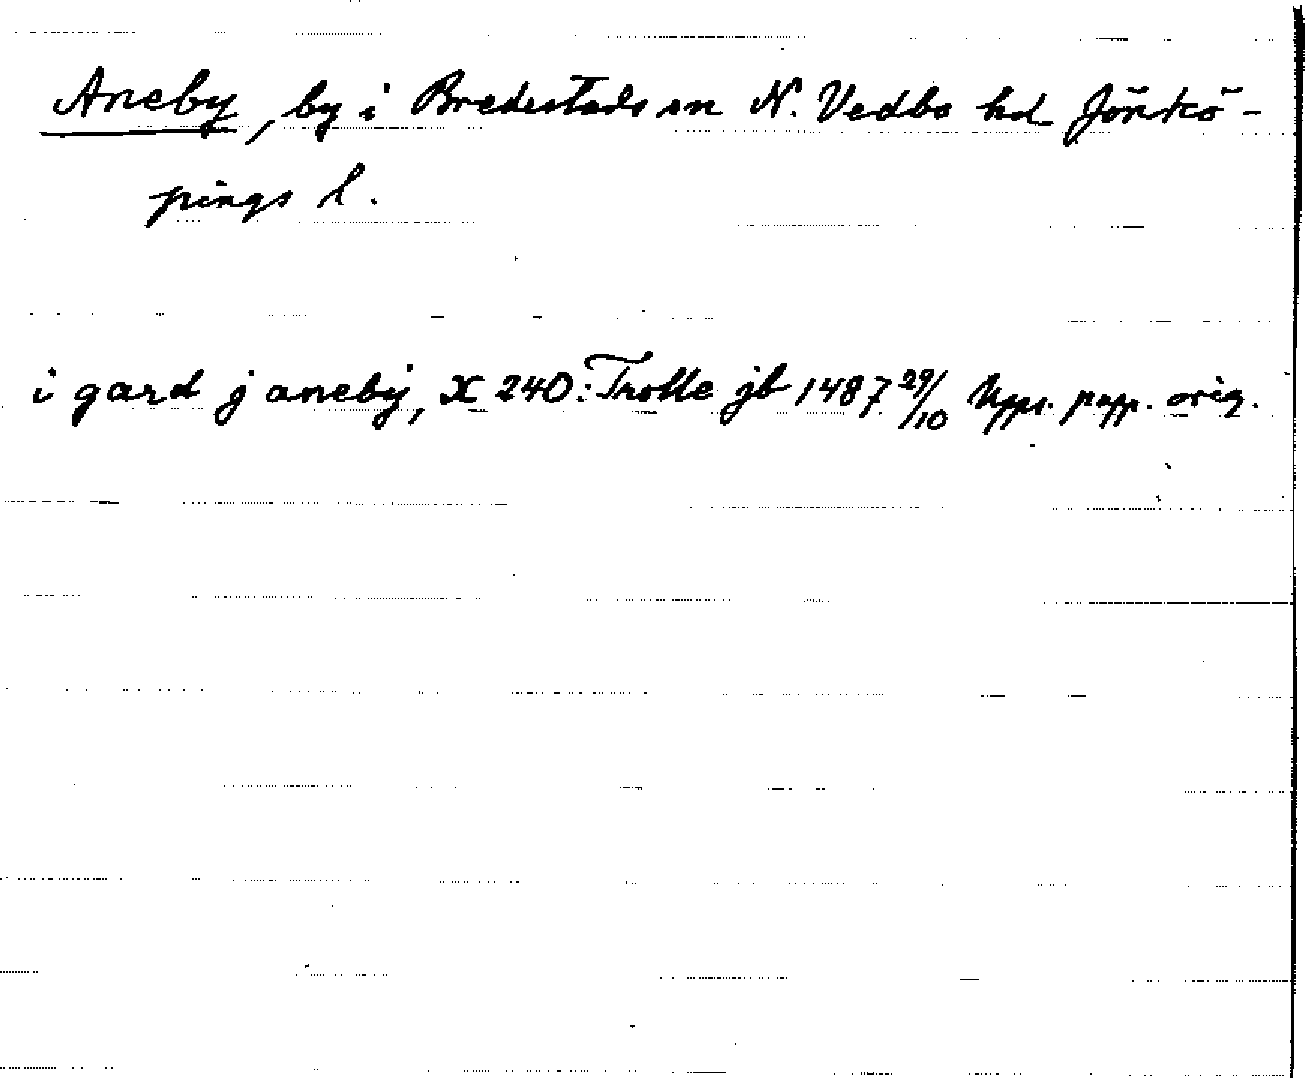 Aneby, by i Bredestads sn N. Vedbo hd Jönkö-
pings l.
i gard j aneby, X 240: Trolle jb 1487 29/10 Upps. papp. orig.